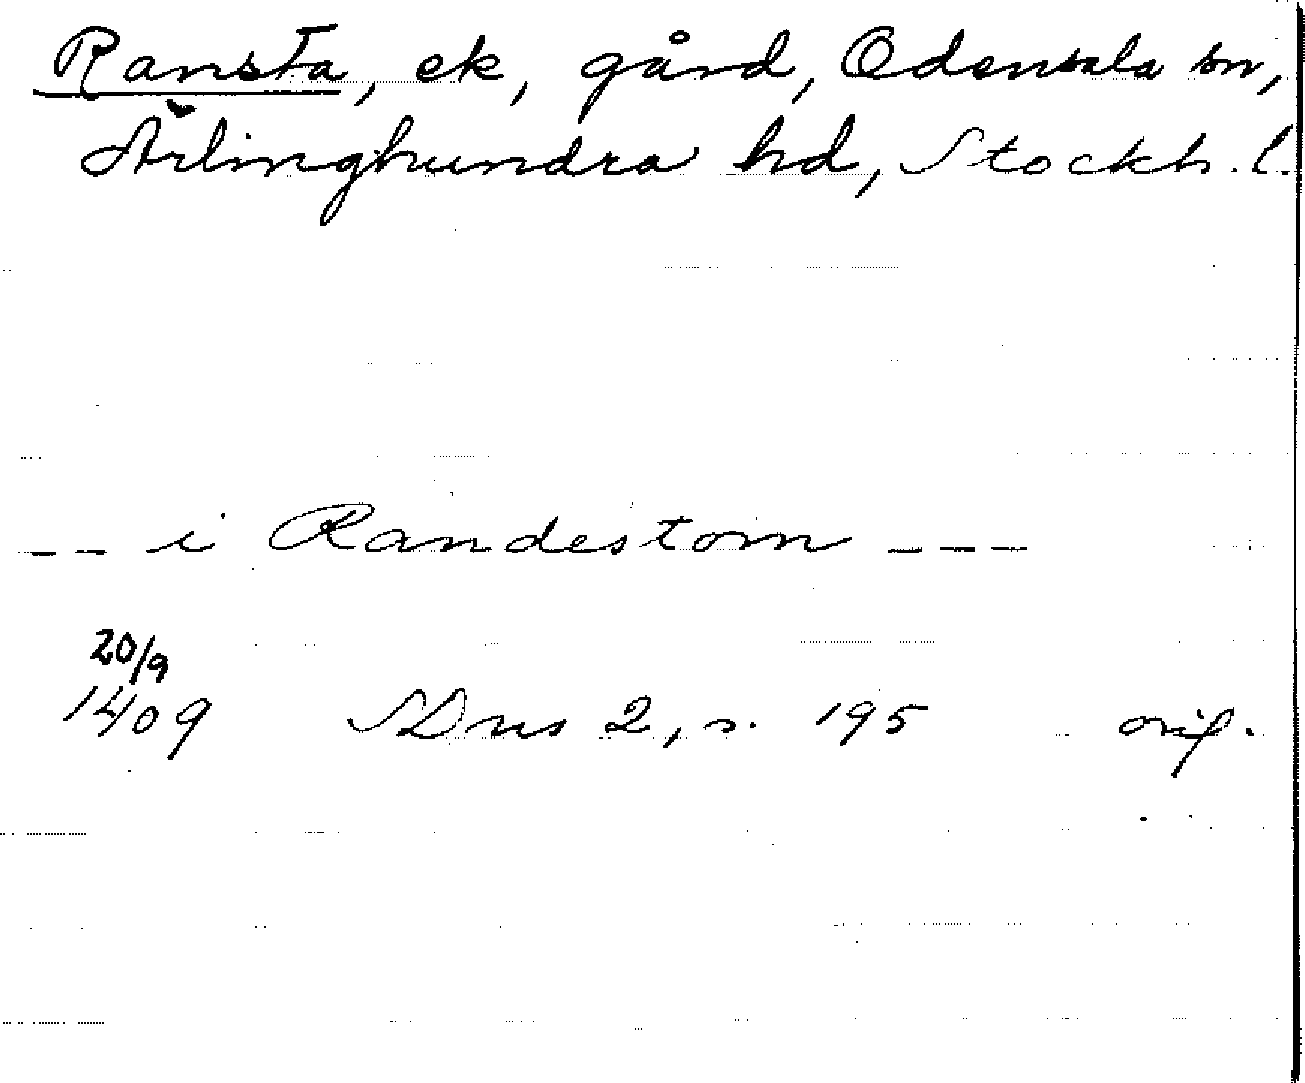 Ransta, ek, gård, Odensala sn,
Ärlinghundra hd, Stockh. l.
-- i Randestom ---
20/9
1409 SDns 2, s. 195 orig.